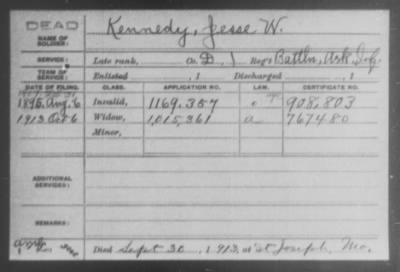 DEAD
Kennedy, Jesse W.
NAME OF
SOLDIER:
SERVICE: Late rank, Co. D, 1 Reg't Battln, Ark Inf.
TERM OF
SERVICE: Enlisted , 1 Discharged , 1
DATE OF FILING. CLASS. APPLICATION NO. LAW. CERTIFICATE NO.
1895, Aug. 6 Invalid, 1169.357 908.803
1913 Oct 6 Widow, 1,015,361 a 767480
Minor,
ADDITIONAL
SERVICES:
REMARKS:
Died Sept 30, 1913, at St Joseph, Mo.